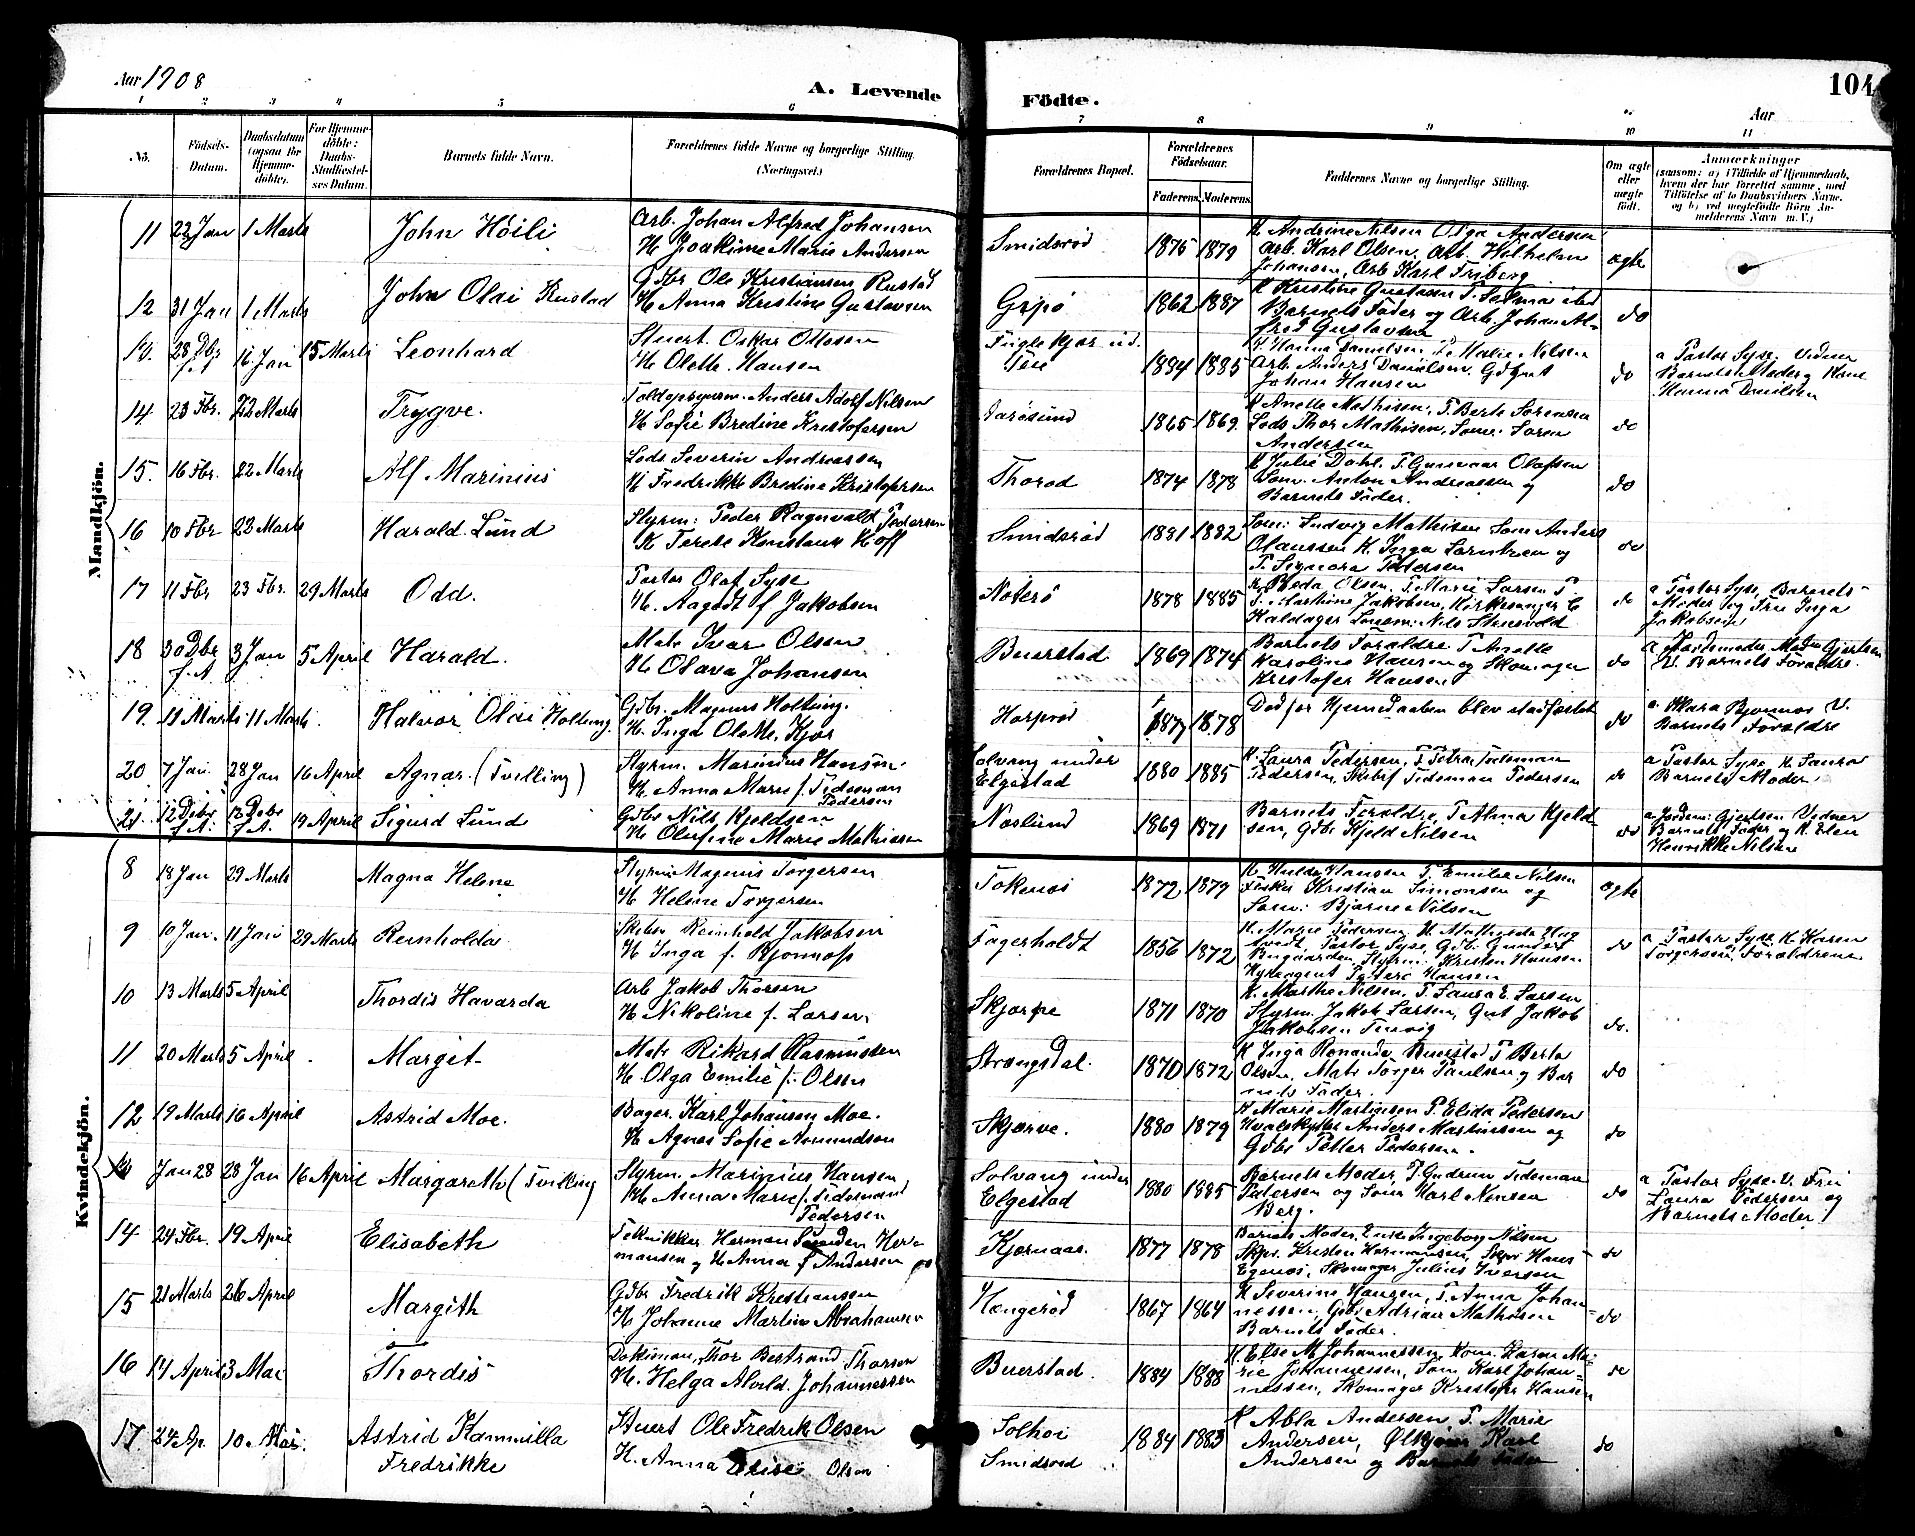 Aar 1908
A. Levende Födte.
104
Aar
1 2 3 4 5 6 7 8 9 10 11
No.
Födsels-Datum.
Daabsdatum (ogsaa for Hjemmedöbte).
For Hjemmedöbte: Daabs-Stadfæstelses Datum.
Barnets fulde Navn.
Forældrenes fulde Navne og borgerlige Stilling. (Næringsvei.)
Forældrenes Bopæl.
Forældrenes Födselsaar.
Faderens. Moderens.
Faddernes Navne og borgerlige Stilling.
Om ægte eller uægte födt.
Anmærkninger
(saasom: a) i Tilfælde af Hjemmedaab, hvem der har forrettet samme, med Tilföielse af to Daabsvidners Navne, og b) ved uegtefödte Börn Anmelderens Navn m. V.)
Mandkjön.
11 22 Jan 1 Marts John Höili Arb. Johan Alfred Johansen
H Joakime Marie Andersen Smidsröd 1875 1879 K Andrine Nilsen Olga Andersen
Arb. Karl Olsen. Arb. Vilhelm
Johansen, Arb Karl Friberg ægte
12 31 Jan 1 Marts John Olai Rustad Gbr Ole Kristiansen Rustad
H. Anna Kristine Gustavsen Gipö 1862 1887 K Kristine Gustavsen P. Selma
Barnets Fader og Arb. Johan Al-
fred Gustavsen do
28 Dbr f.A 16 Jan 15 Marts Leonhard Stuert. Oskar Ottosen
H. Olette Hansen Fuglekjær ud.
Teie 1884 1885 K. Hanna Danielsen. P. Malie Nilsen
Arb. Anders Danielsen. Gdgut
Johan Hansen do a Pastor Syse. Vidner
Barnets Moder og Kone
Hanna Danielsen
14. 23 Fbr. 22 Marts Trygve. Toldopsynsm. Anders Adolf Nilsen
H Sofie Bredine Kristofersen Jarösund 1865 1869. K Anette Mathisen, P. Berte Sörensen
Lods Thor Mathisen, Söm. Sören
Andersen do
15. 16 Fbr. 22 Marts Alf Marinius Lods Severin Andreassen
H Fredrikke Bredine Kristofersen Thoröd 1874 1878 K Julie Dahl. P. Gunvaar Olafsen
Söm. Anton Andreassen og
Barnets Fader. do
16 10 Fbr 22 Marts Harald Lund Styrm: Peder Ragnvald Pedersen
K Terese Konstanse Hoff Smidsröd 1881 1882 Söm: Ludvig Mathisen Söm Anders
Olaussen K. Inga Sörensen og
P. Signora Pedersen do
17 11 Fbr 23 Fbr. 29 Marts Odd. Pastor Olaf Syse
H. Aagodt f Jakobsen Nöterö 1878 1885 K. Olsen. P. Marie Larsen P.
P. Marthine Jakobsen, Kirkesanger E
Haldager do a Pastor Syse, Barnets
Moder og Fru Inga
Jakobsen
18 30 Dbr f.A 3 Jan 5 April Harald. Matr Ivar Olsen
H Olava Johansen Buerstad 1869 1874 Barnets Foræld­re P Anette
Karoline Hansen og Skomager
Kristofer Hansen do a Jordemoder Gjertsen
V. Barnets Forældre.
19. 11 Marts 11 Marts. Halvor Olai Holtung Gdbr. Magnus Holtung.
H. Inga Kjær Harpröd 187 1878 Död för Hjemmedaaben blev stadfæstet do a. Mara Bjonnæs V.
Barnets Forældre
20 7 Jan. 28 Jan 16 April Agnar. (Tvilling) Styrm. Marinius Hansen.
H. Anna Marie f. Tideman
Pedersen Solvang under
Elgestad 1880 1885 K. Laura Pedersen, P Petra Tideman
Pedersen, Skibsf Tideman Pedersen do a Pastor Syse K. Laura
Barnets Moder.
21. 12 Dbr f.A. 12 Debr f.A. 19 April Sigurd Lund Gdbr Nils Kjeldsen
H Olufine Marie Mathissen Næslund 1869 1871 Barnets Forældre, P Alma Kjeld-
sen, Gdbr Kjeld Nilsen do a Jordem: Gjertsen Vidner
Barnets Fader og K. Elen
Henrikke Nilsen
Kvindekjön.
8 18 Jan 29 Marts Magna Helene Styrm Magnus Torgersen
H Helene Torgersen Tokenæs 1872 1879 K Hulda Hansen P. Emilie Nilsen
Fisker Kristian Simonsen og
Söm: Bjarne Nilsen ægte
9 10 Jan. 11 Jan 29 Marts Reinholda Skibsr Reinhold Jakobsen
H Inga f. Bjonnæss Fagerholdt 1856 1872 K. Marie Pedersen. K Mathilde Hag
tvedt, Pastor Syse, Gdb. Gunder
Styrm. Kristen Hansen
Hansen do a Pastor Syse, K Karen
Torgersen, Forældrene
10 13 Marts 5 April Thordis Havarda Arb Jakob Thorsen
H Nikoline f. Larsen Skjærpe 1871 1870 K. Marthe Nilsen. P. Laura E. Larsen
Styrm. Jakob Larsen, Gut Jakob
Jakobsen Tenvig do.
11 20 Marts 5 April Margit Matr Rikard Rasmussen
H. Olga Emilie f. Olsen Strengsdal. 1870 1872 K Inga Ronanda Buerstad P Berta
Olsen, Matr Torger Paulsen og Bar
nets Fader. do
12 19 Marts 16 April Astrid Moe. Bager. Karl Johansen Moe.
H. Agnes Sofie Amundsen Skjerve. 1880 1879 K Marie Martinsen P. Elida Pedersen
Hvalskytter Anders Martinsen og
Gdbr Petter Pedersen. do
Jan 28 28 Jan 16 April Margareth (Tvilling) Styrm. Marinius Hansen
H. Anna Marie f. Tidemand
Pedersen Solvang under
Elgestad 1880 1885 Barnets Moder, P Gudrun Tideman
Pedersen og Söm Karl Nensen
Berg. do a Pastor Syse. V. Fru
Laura Pedersen og
Barnets Moder
14 24 Fbr. 19 April Elisabeth Teknikker Herman Her
mansen og H Anna f Andersen Kjernaas. 1877 1878 Barnets Moder, Enke Ingeborg Nilsen
Skpr. Kristen Hermansen, Skpr Hans
Egenæs, Skomager Julius Iversen do
15 21 Marts 26 April Margith Gdbr Fredrik Kristiansen
H. Johanne Martine Abrahamsen Hængeröd 1867 1864 K Severine Hansen, P. Anna Johan-
nessen, Gdbr Adrian Mathisen
Barnets Fader. do
16 14 April 3 Mai Thordis Dokkman, Thor Bertrand Thorsen
H. Helga Alvild. Johannessen Buerstad. 1884 1888 K. Else M Johannessen, Kom. Karen Ma-
rie Johannessen, Söm Karl Johan-
nessen, Skomager Kristofer Hansen do
17 24 Ap. 10 Mai. Astrid Kammilla
Fredrikke Stuert Ole Fredrik Olsen
H. Anna Elise Olsen Solhoi
Smidsröd 1884 1883 K Abla Andersen, P. Marie
Andersen, Karl
Andersen og Barnets Fader do